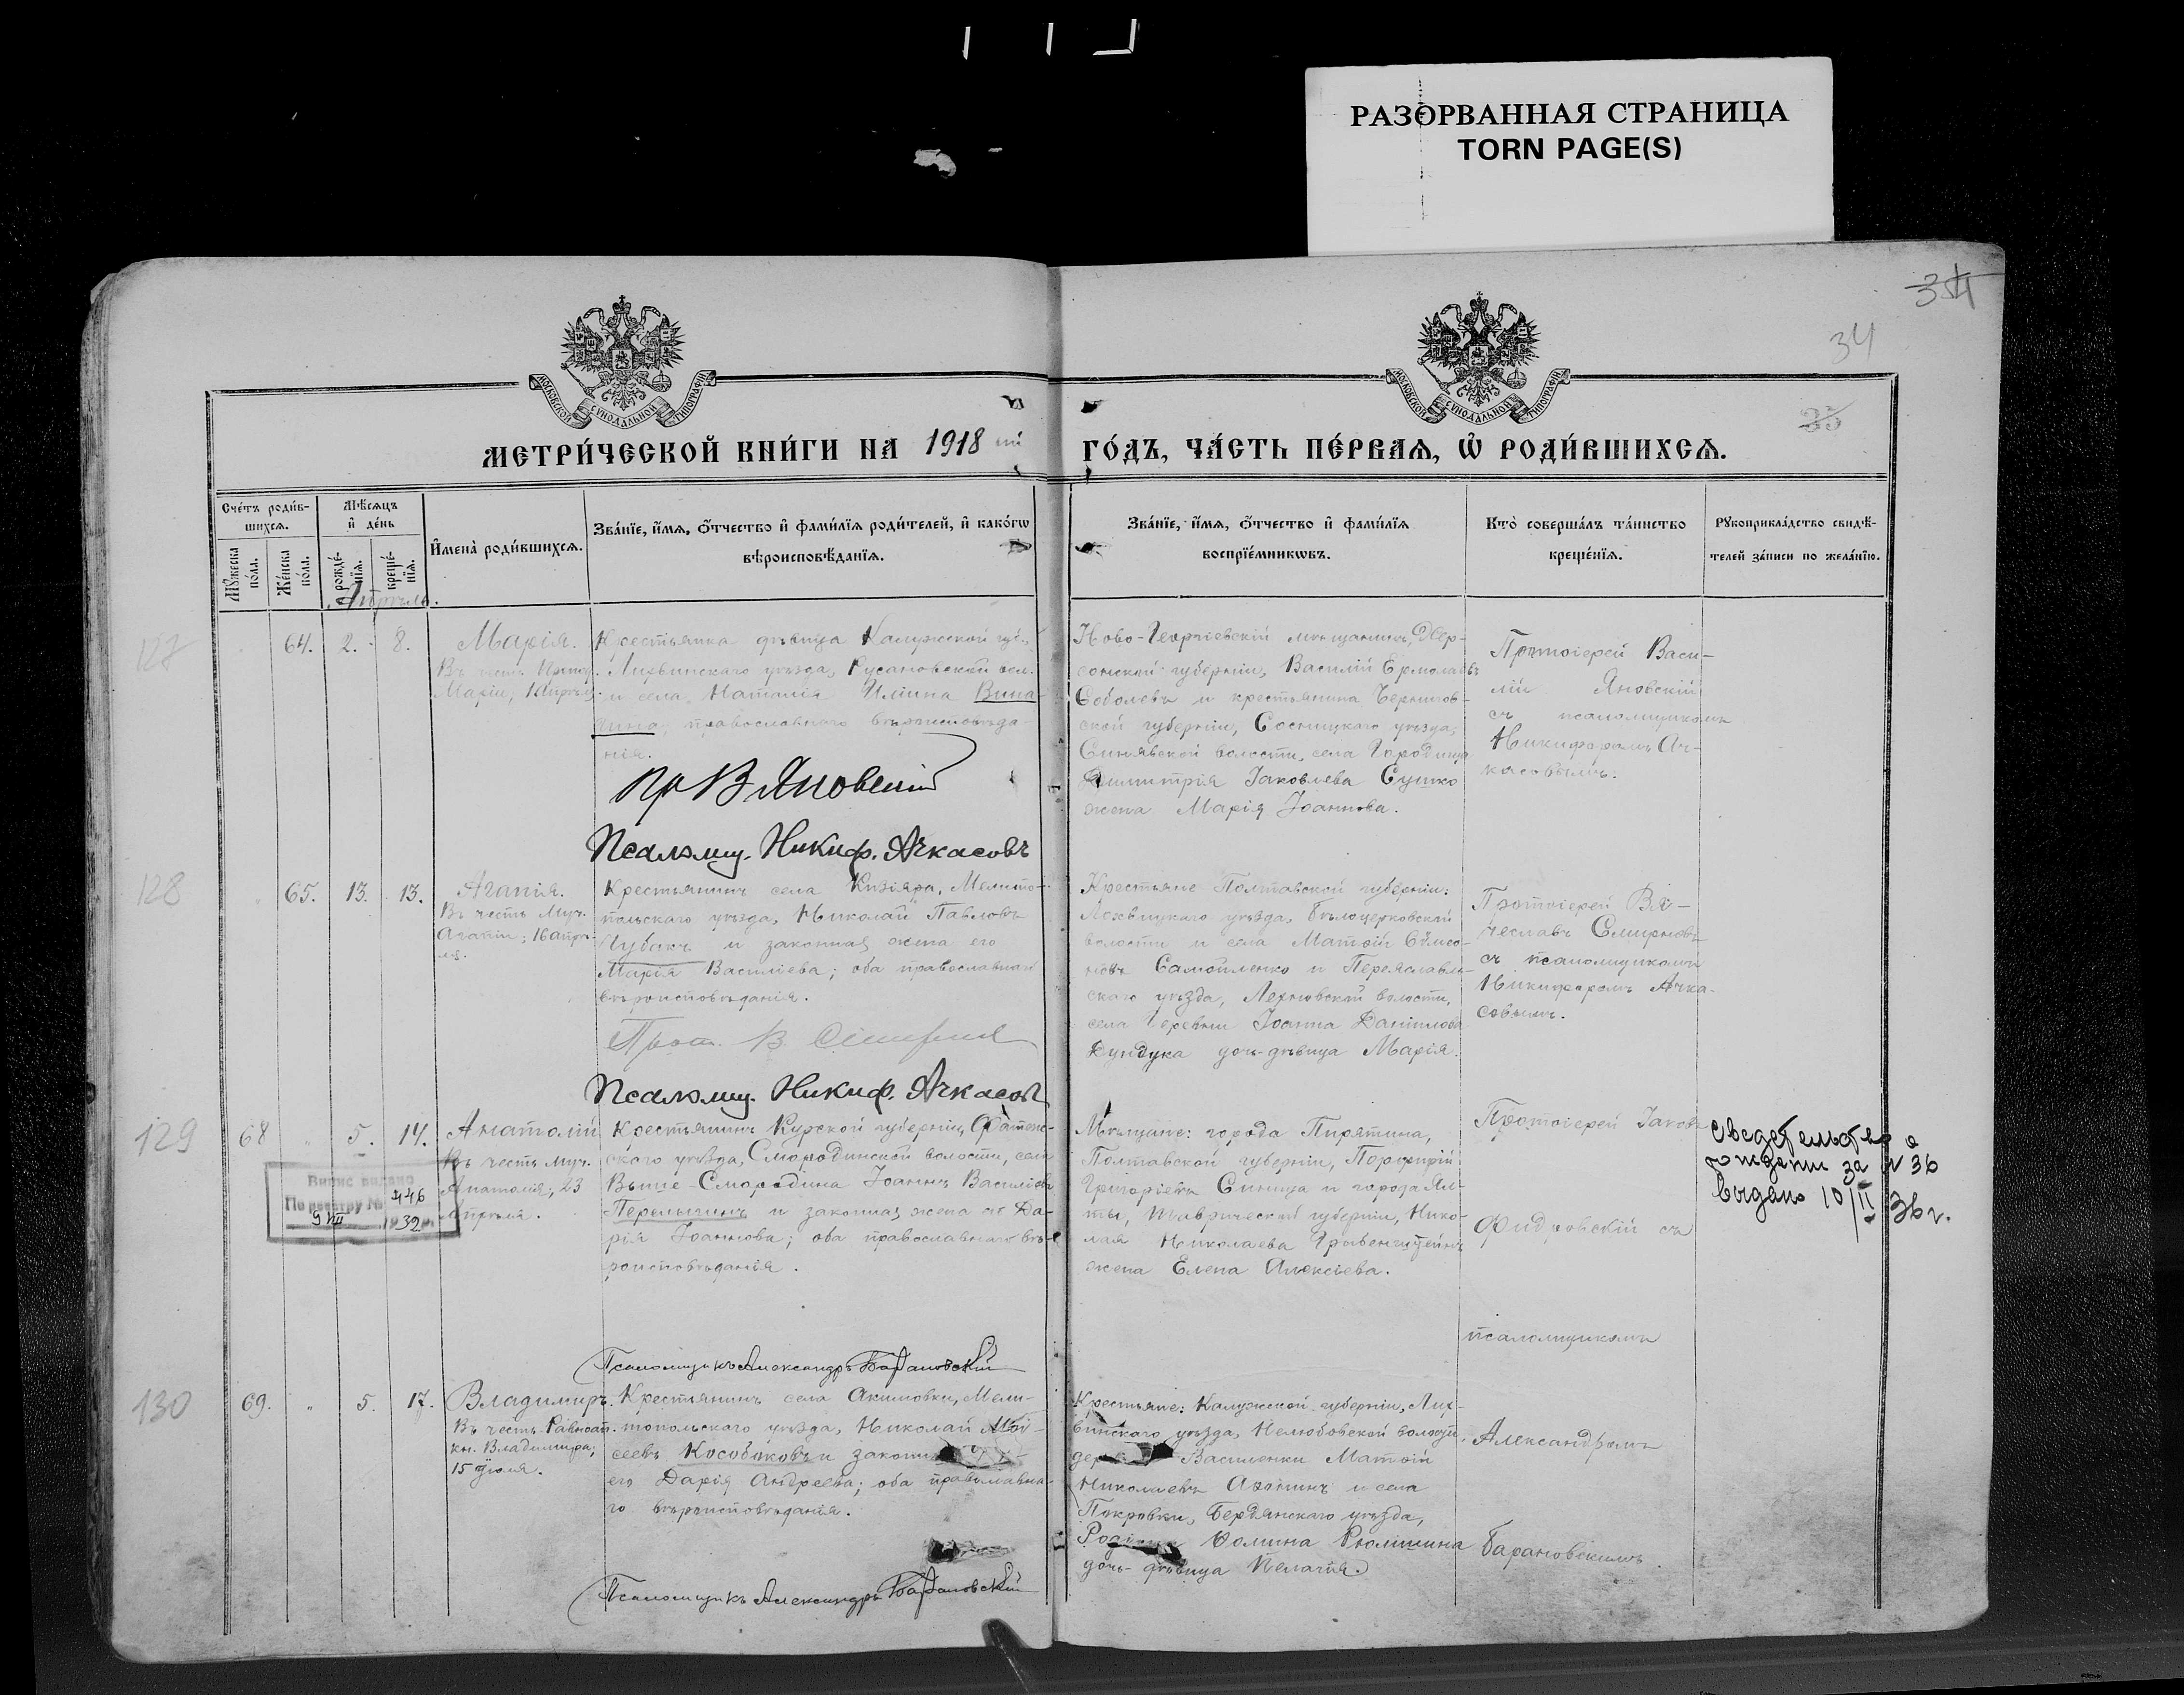 РАЗОРВАННАЯ СТРАНИЦА
TORN PAGE(S)
34
34
35
МОСКОВСКОЙ СѴНОДАЛЬНОЙ ТИПОГРАФІИ
МОСКОВСКОЙ СѴНОДАЛЬНОЙ ТИПОГРАФІИ
МЕТРИ́ЧЕСКОЙ КНИ́ГИ НА 1918 ый
ГО́ДЪ, ЧА́СТЬ ПЕ́РВАЯ, Ѡ҆ РОДИ́ВШИХСЯ.
Сче́тъ роди́вшихся.
Мꙋ́жеска по́ла.
Же́нска по́ла.
Мѣ́сяцъ и҆ де́нь
рожде́нїя.
креще́нїя.
И҆мена̀ роди́вшихся.
Зва́нїе, и҆́мя, ѻ҆́тчество и҆ фами́лїя роди́телей, и҆ како́гѡ
вѣроисповѣ́данїя.
Зва́нїе, и҆́мя, ѻ҆́тчество и҆ фами́лїя
воспрїе́мникѡвъ.
Кто̀ соверша́лъ та́инство
креще́нїя.
Рꙋкоприкла́дство свидѣ́-
телей за́писи по жела́нїю.
Апрѣль.
127
64. 2. 8.
Марія.
Въ честь Препод.
Маріи, 1 Апрѣля.
Крестьянка дѣвица Калужской губ.,
Лихвинскаго уѣзда, Русановской вол.
и села, Наталія Иліина Вина-
православнаго вѣроисповѣда-
нія.
Пр В Яновскій
Псаломщ. Никиф. Ачкасовъ
Ново-Георгіевскій мѣщанинъ, Хер-
сонской губерніи, Василій Ермолаевъ
Соболевъ и крестьянина Чернигов-
ской губерніи, Сосницкаго уѣзда,
Синявской волости, села Городища
Димитрія Іаковлева Сушко
жена Марія Іоаннова.
Протоіерей Васи-
лій Яновскій
съ псаломщикомъ
Никифоромъ Ач-
касовымъ.
128
65. 13. 13.
Агапія.
Въ честь Муч.
Агапіи; 16 апрѣ-
ля.
Крестьянинъ села Кизіяра, Мелито-
польскаго уѣзда, Николай Павловъ
Чубакъ и законная жена его
Марія Василіева; оба православнаго
вѣроисповѣданія.
Прот. В. Смирновъ
Псаломщ. Никиф. Ачкасовъ
Крестьяне Полтавской губерніи:
Лохвицкаго уѣзда, Бѣлоцерковской
волости и села Матѳій Сѵмео-
новъ Самойленко и Переяслав-
скаго уѣзда, волости,
села Іоанна Даніилова
Кундука дочь-дѣвица Марія.
Протоіерей Вя-
чеславъ Смирновъ
съ псаломщикомъ
Никифоромъ Ачка-
совымъ.
129
68 5. 14.
Анатолій
Въ честь муч.
Анатолія; 23
Апрѣля.
Випис видано
По реєстру № 446
9 VIII 1932 р.
Крестьянинъ Курской губерніи, Фатеж-
скаго уѣзда, Смородинской волости, села
Выше-Смородина Іоаннъ Василіевъ
Перелыгинъ и законная жена его Да-
рія Іоаннова; оба православнаго вѣ-
роисповѣданія.
Псаломщикъ Александръ Барановскій
Мѣщане: города Пирятина,
Полтавской губерніи, Порфирій
Григоріевъ Синица и города Ял-
ты, Таврической губерніи, Нико-
лая Николаева
жена Елена Алексіева.
Протоіерей Іаковъ
съ
псаломщикомъ
Сведетельство о
рождении за № 36
Выдано 10/II 36 г.
130
69. 5. 17.
Владимиръ.
Въ честь Равноап.
кн. Владимира;
15 Іюля.
Крестьянинъ села Акимовки, Мели-
топольскаго уѣзда, Николай Мои-
сеевъ Кособоковъ и законн
его Дарія Андреева; оба православна-
го вѣроисповѣданія.
Псаломщикъ Александръ Барановскій
Крестьяне: Калужской губерніи, Лих-
винскаго уѣзда, Нелюбовской волости,
дер Василенки Матѳій
Николаевъ и села
Покровки, Бердянскаго уѣзда,
Ѳомина
дочь-дѣвица Пелагія.
Александромъ
Барановскимъ.